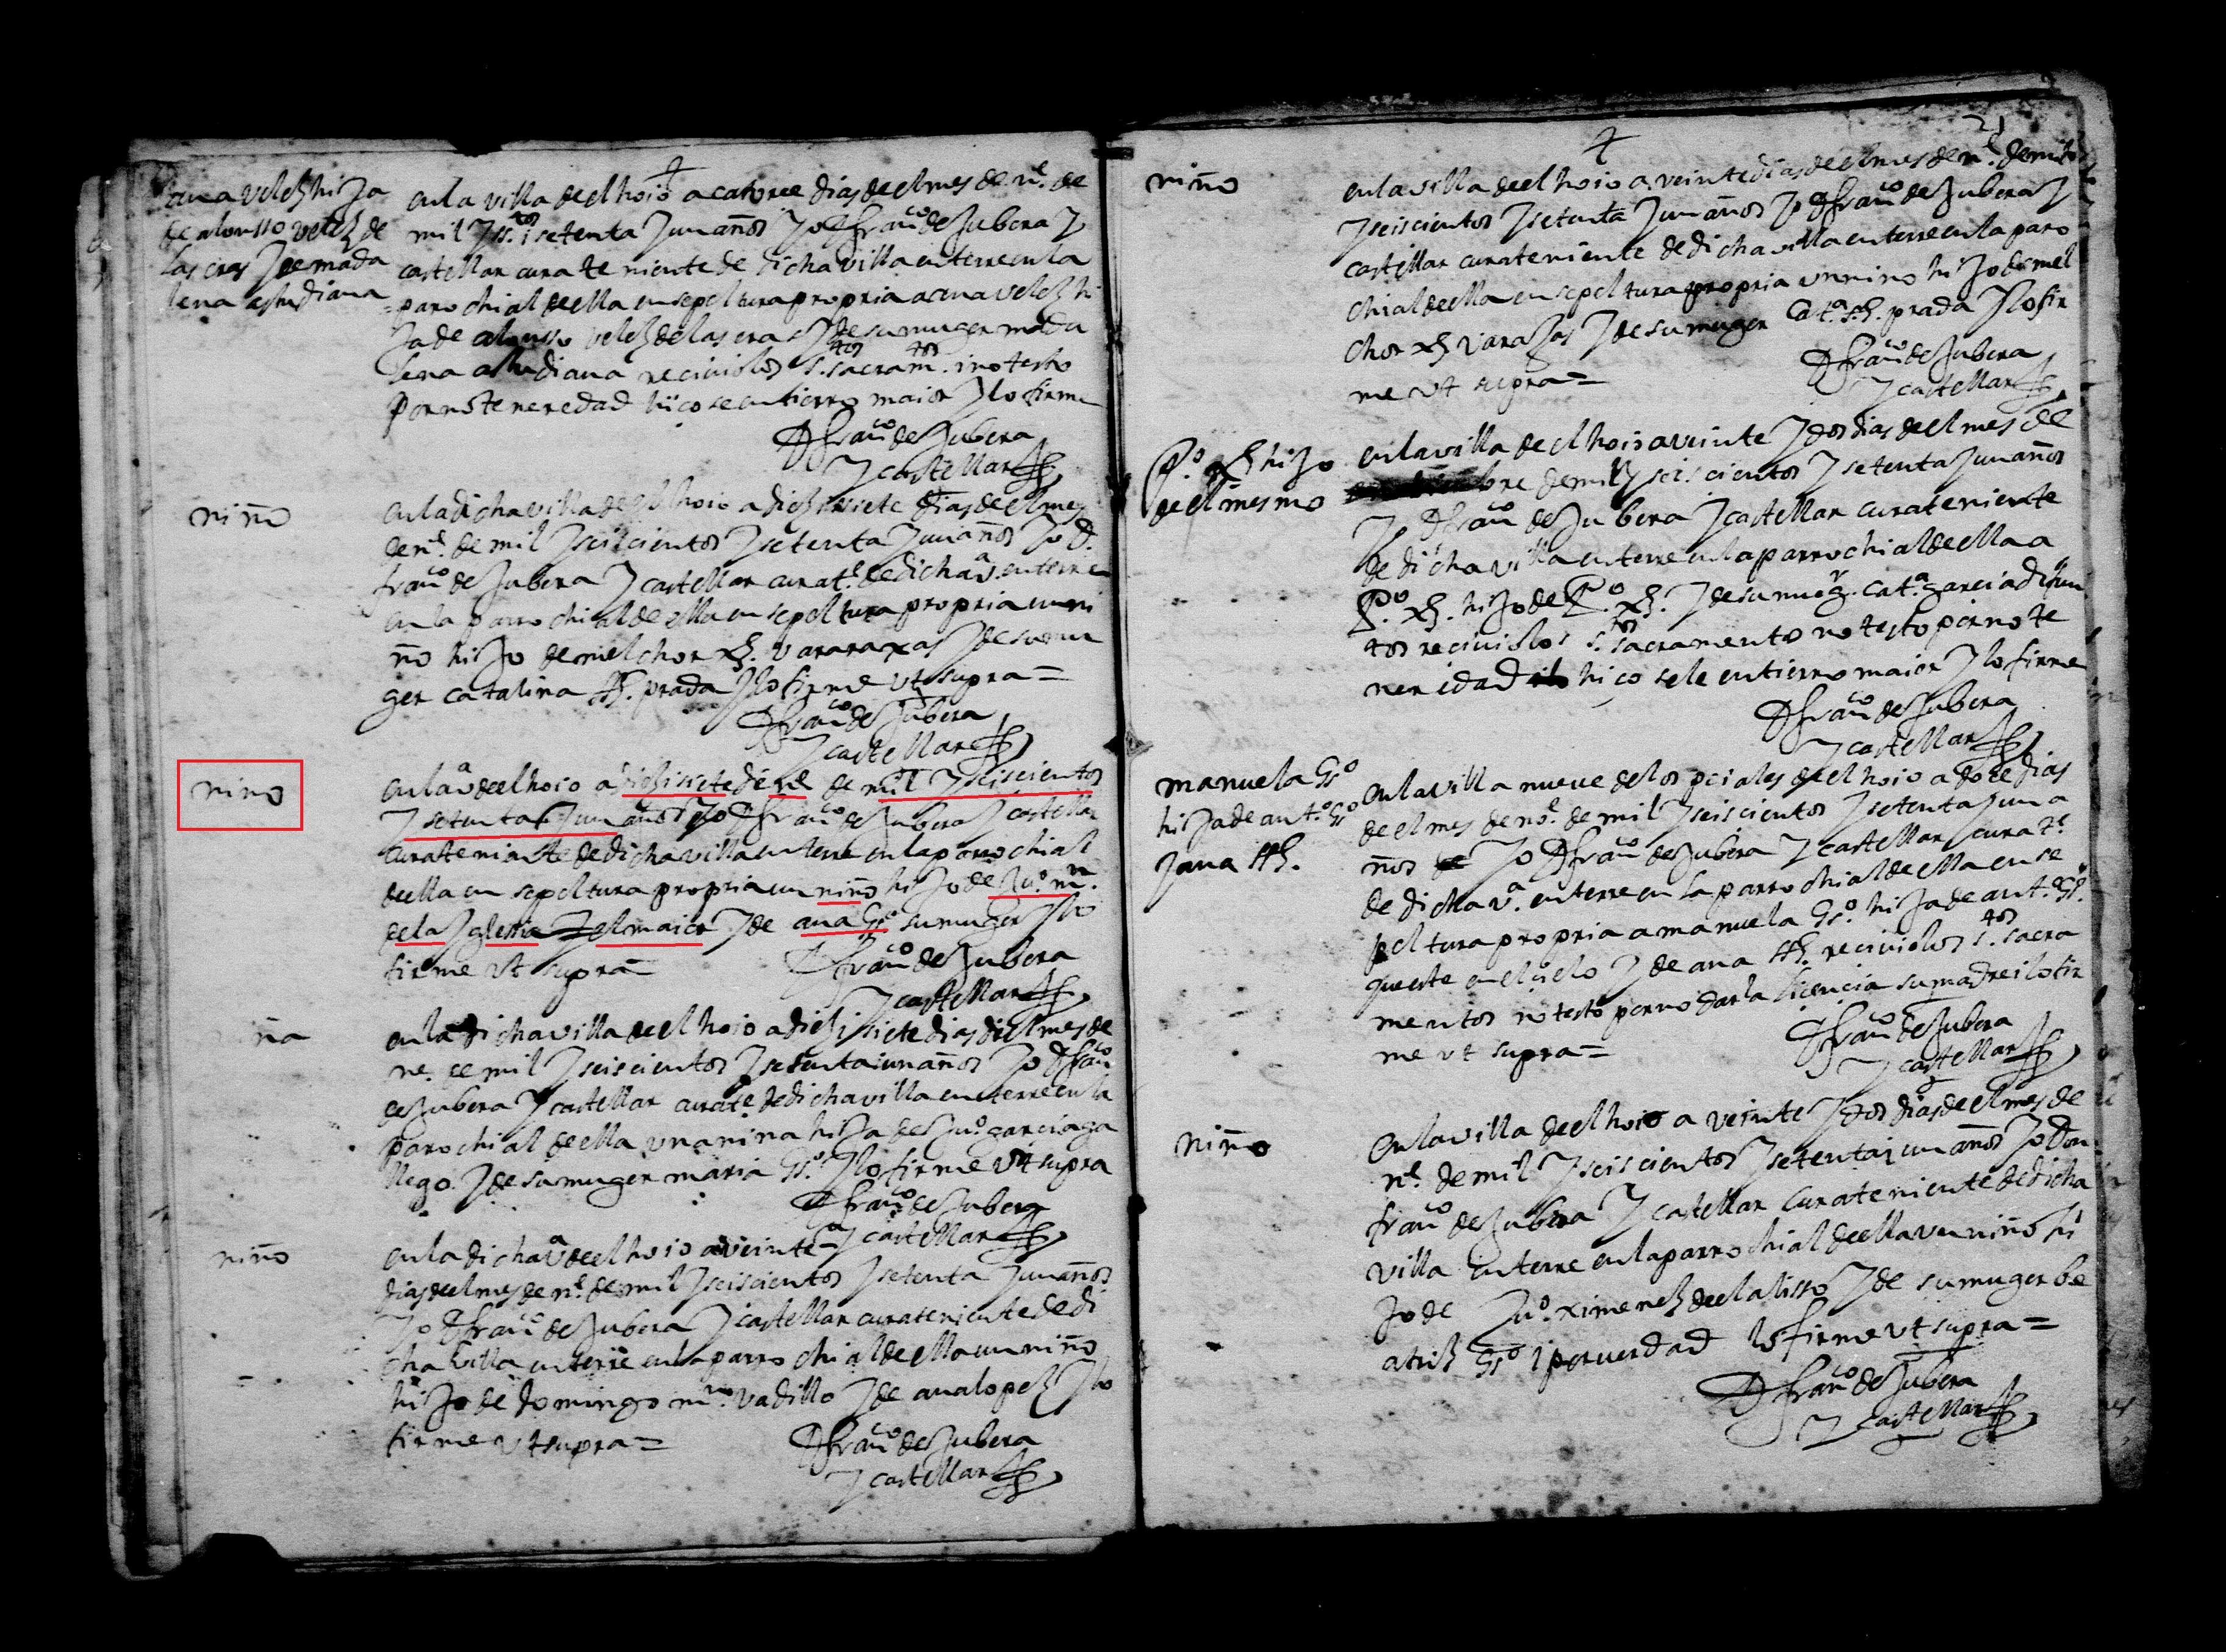 ana velez hija
de alonsso velez de
las eras y de mada
lena estudiana
en la villa de el hoio a catorce dias de el mes de n.e de
mil y ss.tos i setenta y un años yo D fran.co de Jubera y
castellar cura teniente de dicha villa enterre en la
parochial de ella en sepoltura propria a ana velez hi
ja de alonsso velez de las eras y de su muger mada
lena estudiana recivio los s.tos sacram.tos i no testo
por no tener edad hiço se entierro maior y lo firme
D fran.co de Jubera
y castellar
niño
en la dicha villa de el hoio a diez i siete dias de el mes
de n.e de mil y seiscientos y setenta y un años yo D.
fran.co de Jubera y castellar cura t.e de dicha v.a enterre
en la parrochial de ella en sepoltura propria un ni
ño hijo de melchor x.z vararaxas y de su mu
ger catalina ss. prada y lo firme ut supra =
D fran.co de Jubera
y castellar
nino
en la v.a de el hoio a diez i siete de n.e de mil y seiscientos
y setenta y un años yo D fran.co de Jubera y castellar
cura teniente de dicha villa enterre en la parrochial
de ella en sepoltura propria un niño hijo de Ju.o m.n
de la yglessia el maior y de ana Gs.o su muger y lo
firme ut supra =
D fran.co de Jubera
y castellar
ña
en la dicha villa de el hoio a diez i siete dias di el mes de
ne. de mil y seiscientos y setenta i un años yo D fran.co
de Jubera y castellar cura te. de dicha villa enterre en la
parochial de ella una nina hija de Ju.o garcia ga
llego y de su muger maria Gs.o y lo firme ut supra
D fran.co de Jubera
y castellar
niño
en la dicha v.a de el hoio a veinte
dias de el mes de n.e de mil y seiscientos y setenta y un años
yo D fran.co de Jubera y castellar cura teniente de di
cha villa enterre en la parrochial de ella un niño
hijo de domingo m.n vadillo y de ana lopez y lo
firme ut supra =
D fran.co de Jubera
y castellar
21
niño
en la villa de el hoio a veinte dias de el mes de n.e de mil
y seiscientos y setenta y un años yo D fran.co de Jubera y
castellar cura teniente de dicha villa enterre en la paro
chial de ella en sepoltura propria un nino hijo de mel
chor x.z varajas y de su muger Cat.a ss. prada y lo fir
me ut supra =
D fran.co de Jubera
y castellar
P.o x.z hijo
de el mesmo
en la villa de el hoio a veinte y dos dias de el mes de
de mil y seiscientos y setenta y un años
yo D fran.co de Jubera y castellar cura teniente
de dicha villa enterre en la parrochial de ella a
P.o x.z. hijo de P.o x.z. y de su mug.r cat.a garcia difun
tos recivio los s.tos sacramentos no testo por no te
ner edad hico sele entierro maior y lo firme
D fran.co de Jubera
y castellar
manuela Gs.o
hija de ant.o Gs.o
y ana ss.
en la villa nueve de los de el hoio a doce dias
de el mes de no.e de mil y seiscientos y setenta y un a
ños yo D fran.co de Jubera y castellar cura t.e
de dicha v.a enterre en la parrochial de ella en se
poltura propria a manuela Gs.o hija de ant.o Gs.o
que este en el cielo y de ana ss. recivio los s.tos sacra
mentos no testo por no darla licencia su madre i lo fir
me ut supra =
D fran.co de Jubera
y castellar
Niño
en la villa de el hoio a veinte y dos dias de el mes de
n.e de mil y seiscientos y setenta i un años yo Don
fran.co de Jubera y castellar cura teniente de dicha
villa enterre en la parrochial de ella un niño hi
jo de Ju.o ximenez de el alisso y de su muger be
atriz Gs.o i por verdad lo firme ut supra =
D fran.co de Jubera
y castellar